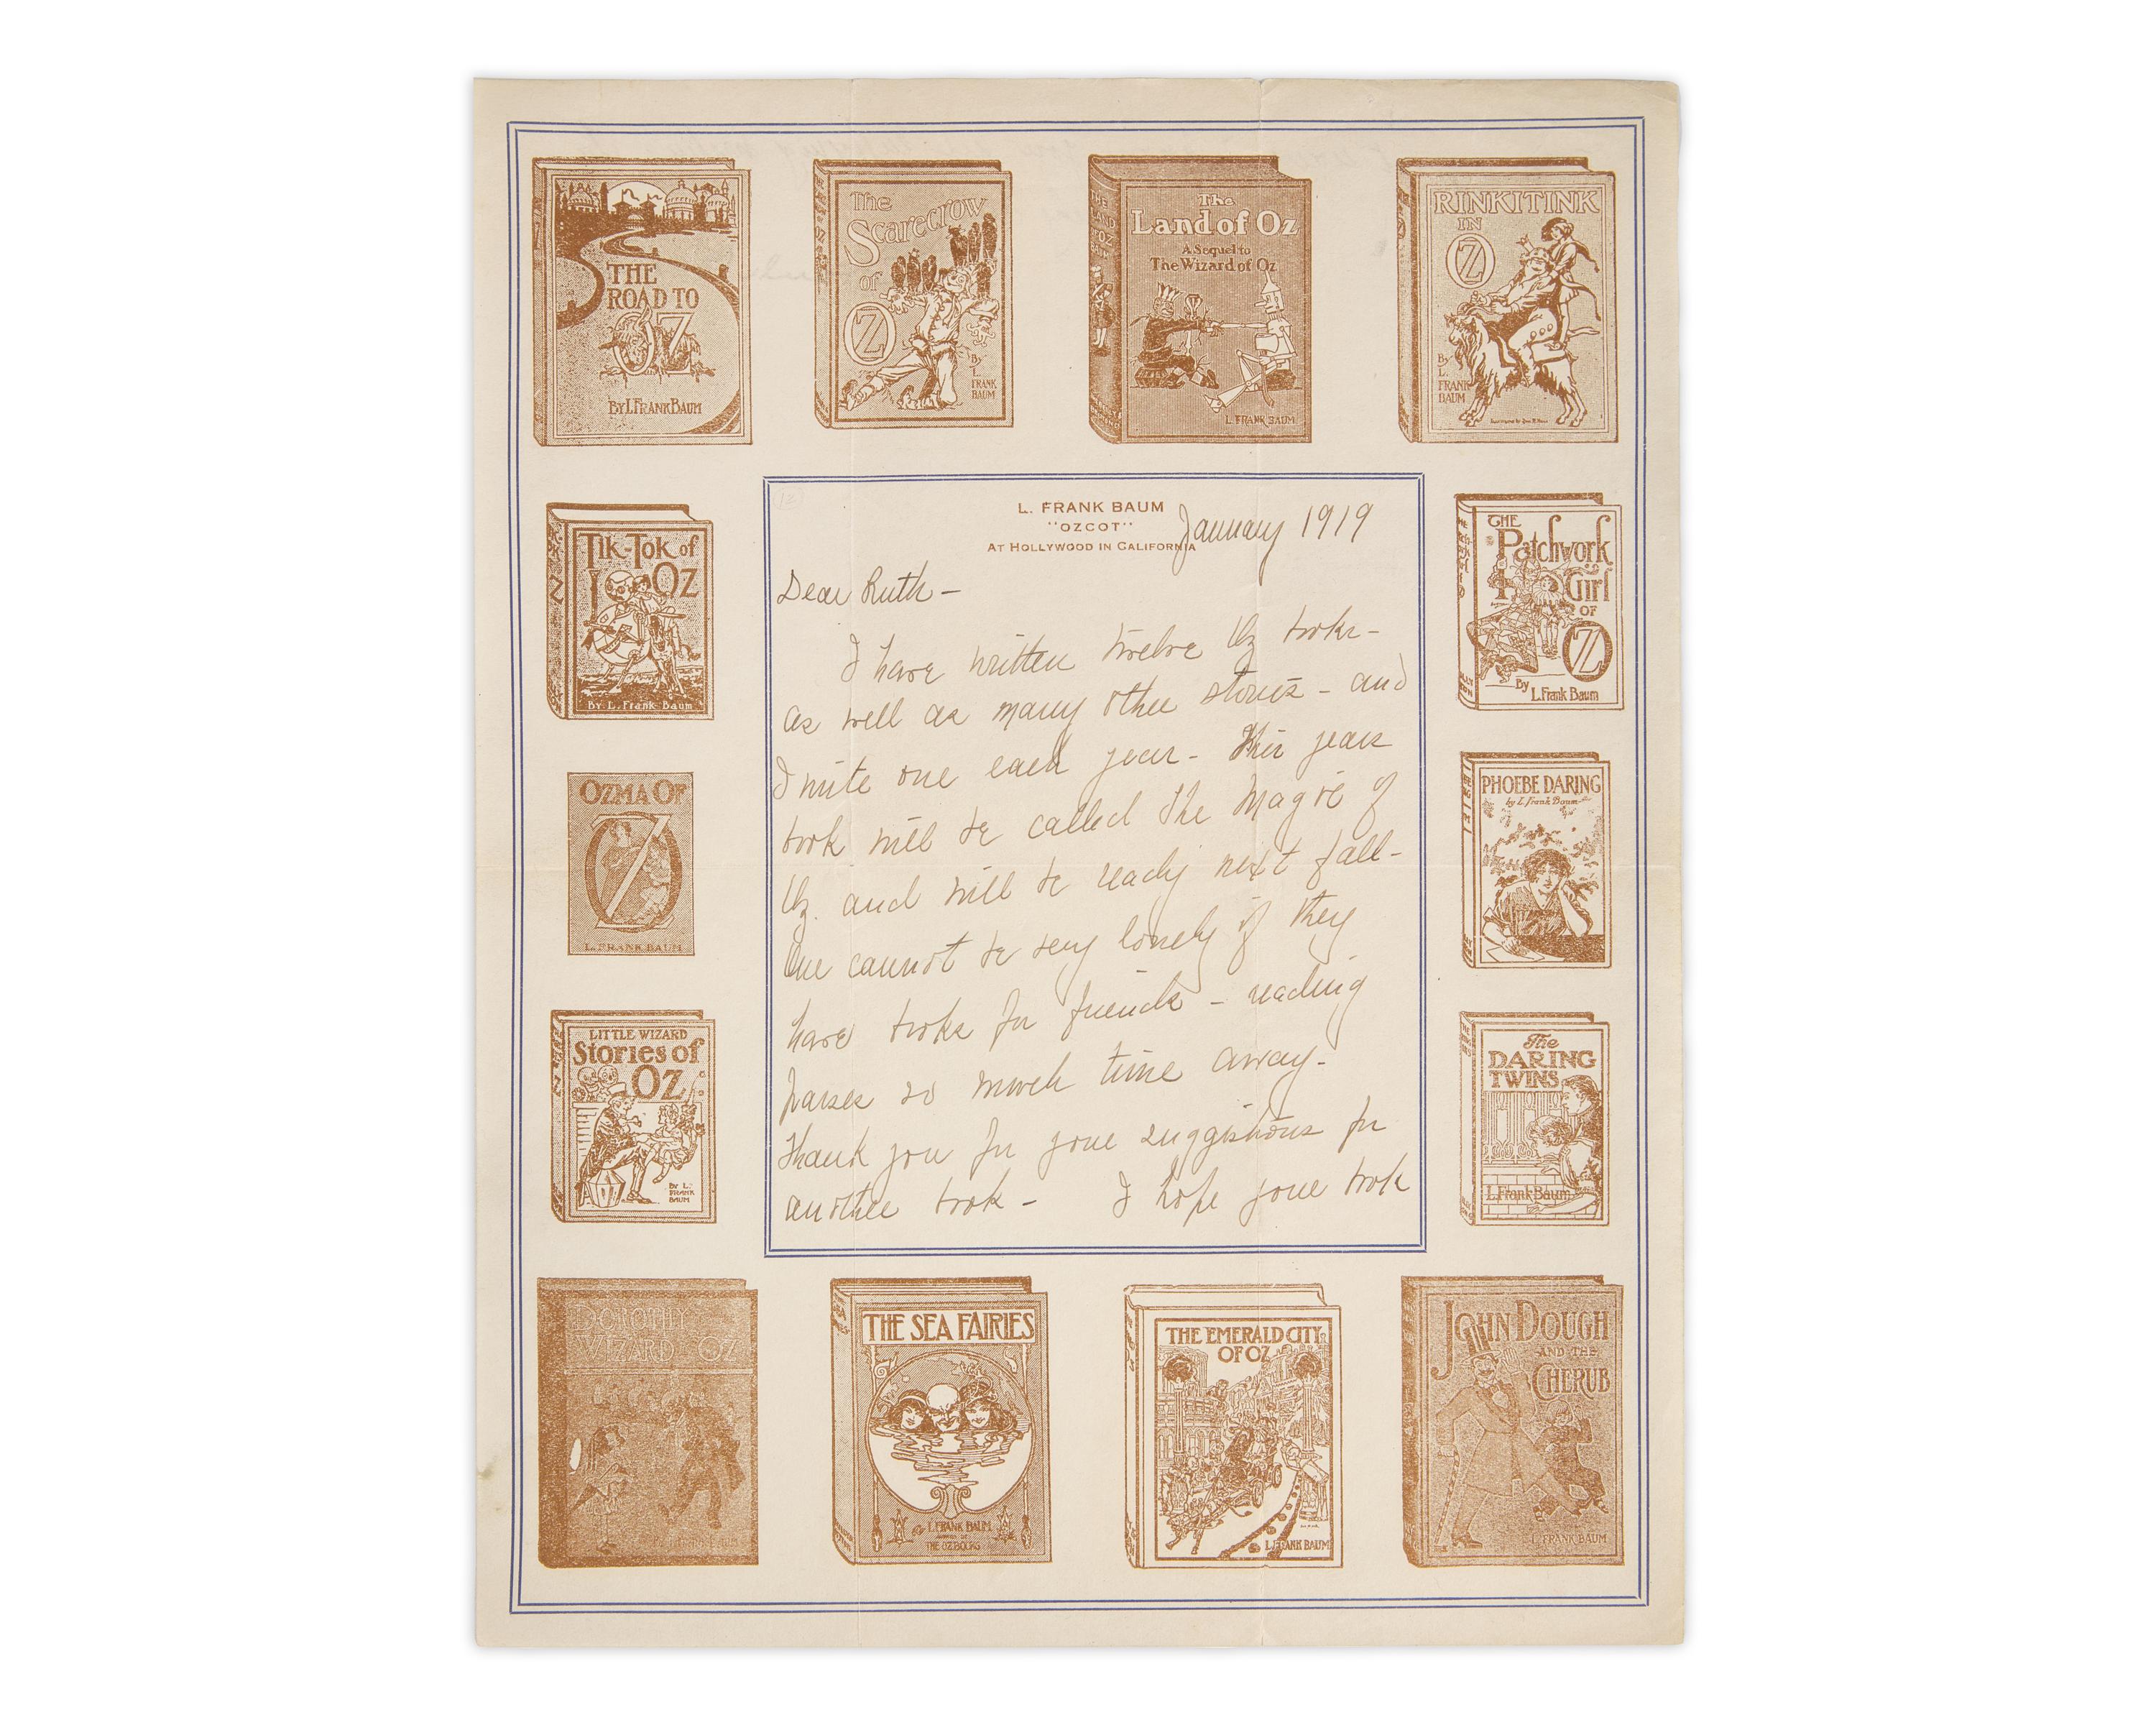 THE
ROAD TO
OZ
BY L. FRANK BAUM
The
Scarecrow
of
OZ
By
L.
FRANK
BAUM
THE
LAND
OF OZ
BAUM
The
Land of Oz
A Sequel to
The Wizard of Oz
L. FRANK BAUM
RINKITINK
IN
OZ
By
L.
FRANK
BAUM
TIK-TOK of
OZ
By L. Frank Baum
THE
Patchwork
Girl
OF
OZ
By L. Frank Baum
OZMA OF
OZ
L. FRANK BAUM
PHOEBE DARING
by L. Frank Baum
LITTLE WIZARD
Stories of
OZ
BY L.
FRANK
BAUM
The
DARING
TWINS
L. Frank Baum
L. FRANK BAUM
"OZCOT"
AT HOLLYWOOD IN CALIFORNIA
January 1919
Dear Ruth –
I have written twelve Oz books –
as well as many other stories – and
I write one each year – This years
book will be called The Magic of
Oz and will be ready next fall –
One cannot be very lonely if they
have books for friends – reading
passes so much time away –
Thank you for your suggestions for
another book – I hope your book
DOROTHY
WIZARD OZ
THE SEA FAIRIES
By L. FRANK BAUM
AUTHOR OF
THE OZ BOOKS
THE EMERALD CITY
OF OZ
L. FRANK BAUM
JOHN DOUGH
AND THE
CHERUB
L. FRANK BAUM